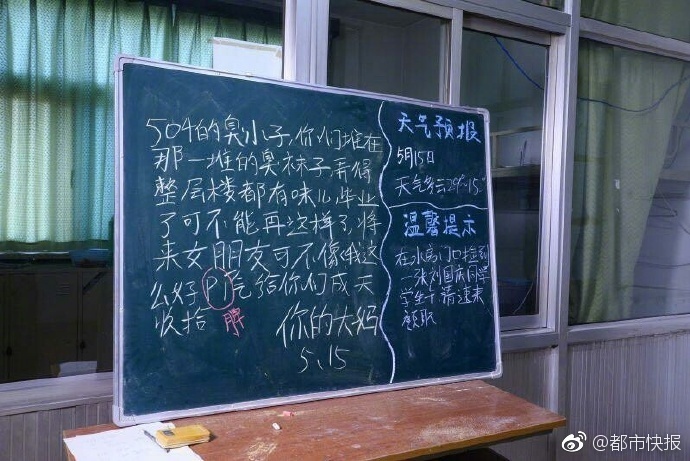 504的臭小子,你们堆在
那一堆的臭袜子,弄得
整层楼都有味儿,毕业
了可不能再这样了,将
来女朋友可不像俄这
么好PI气给你们成天
收拾 脾
你的大妈
5.15
天气预报
5月15日
天气多云29°~15°
温馨提示
在水房门口捡到
一张刘国庆同学
学生卡 请速来
领取
@都市快报